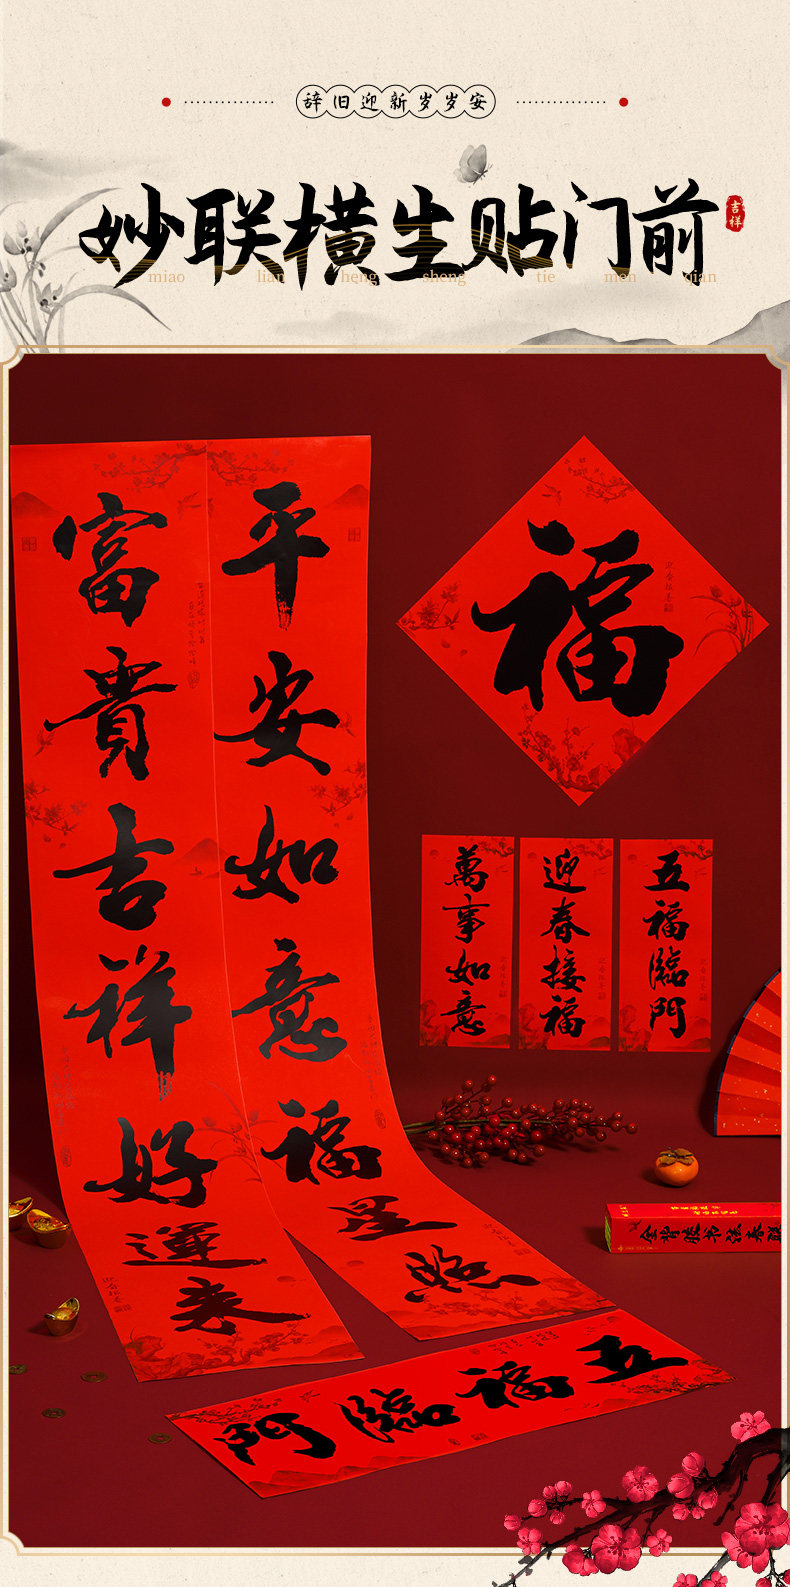 辞旧迎新岁岁安
妙联横生贴门前
吉祥
miao lian heng sheng tie men qian
平安如意福星照
富貴吉祥好運来
福
萬事如意
迎春接福
五福臨門
全背胶书法春联
五福臨門